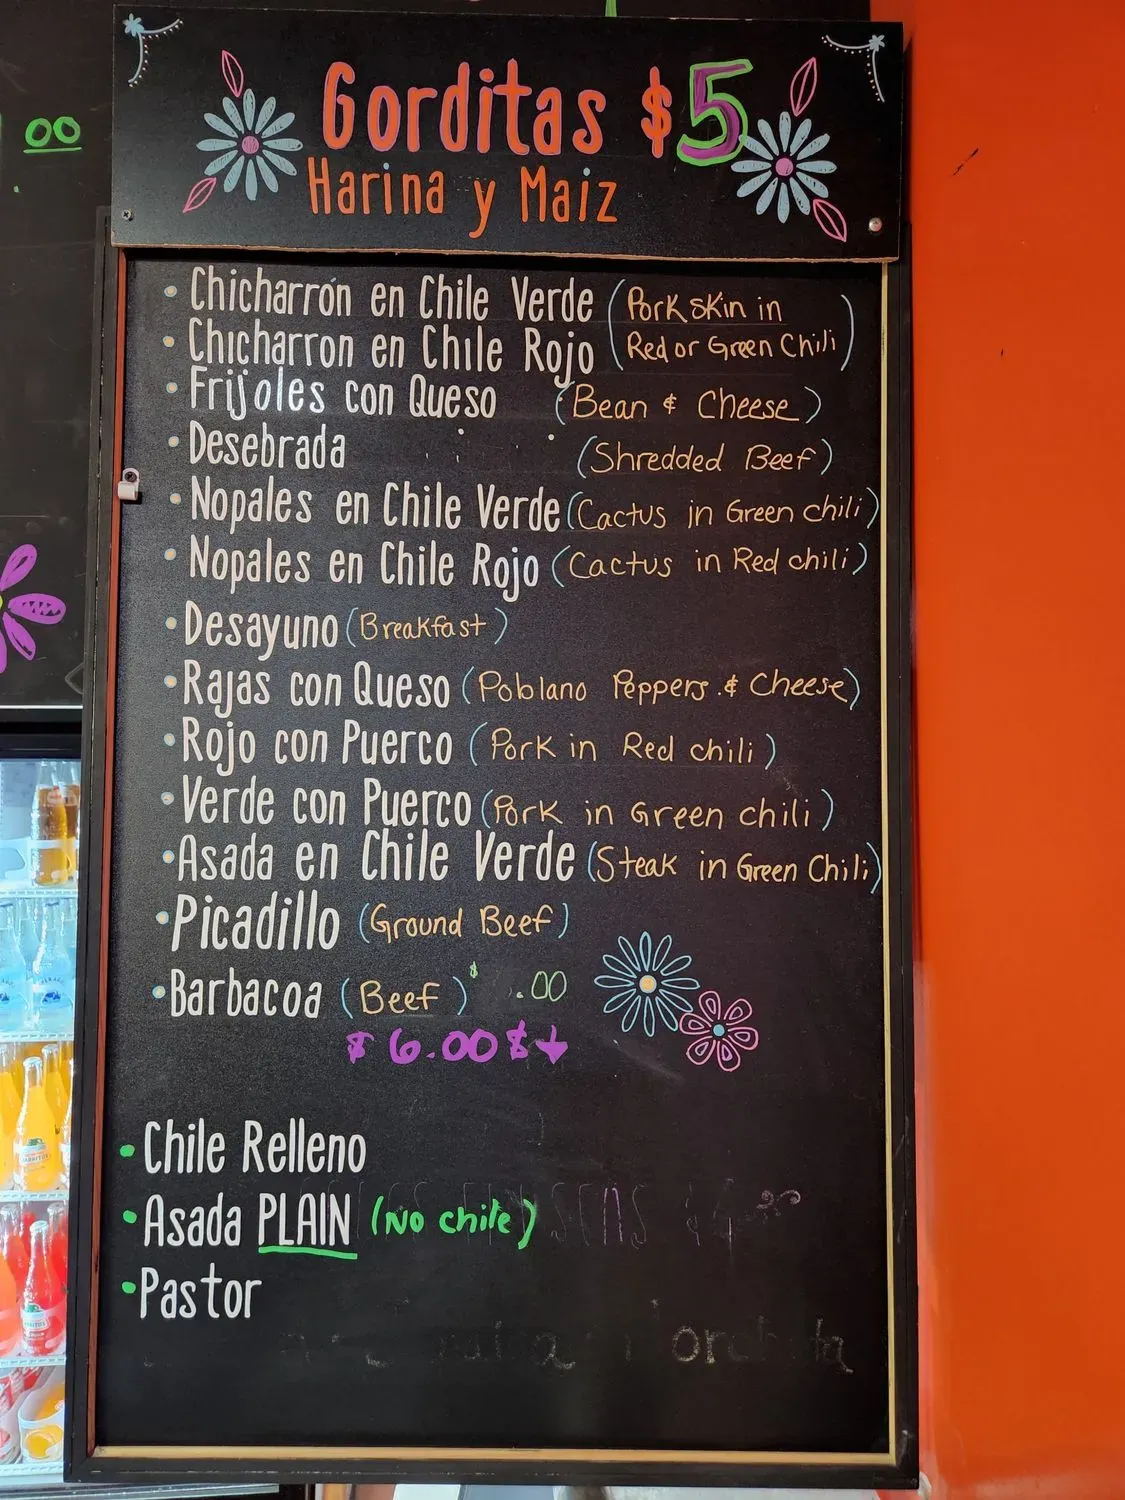 00
Gorditas $5
Harina y Maiz
• Chicharrón en Chile Verde (Pork skin in
• Chicharron en Chile Rojo Red or Green Chili)
• Frijoles con Queso (Bean & Cheese)
• Desebrada (Shredded Beef)
• Nopales en Chile Verde (Cactus in Green chili)
• Nopales en Chile Rojo (Cactus in Red chili)
• Desayuno (Breakfast)
• Rajas con Queso (Poblano Peppers & Cheese)
• Rojo con Puerco (Pork in Red chili)
• Verde con Puerco (Pork in Green chili)
• Asada en Chile Verde (Steak in Green Chili)
• Picadillo (Ground Beef)
• Barbacoa (Beef) $ .00
$ 6.00 $ ↓
• Chile Relleno
• Asada PLAIN (No chile)
• Pastor